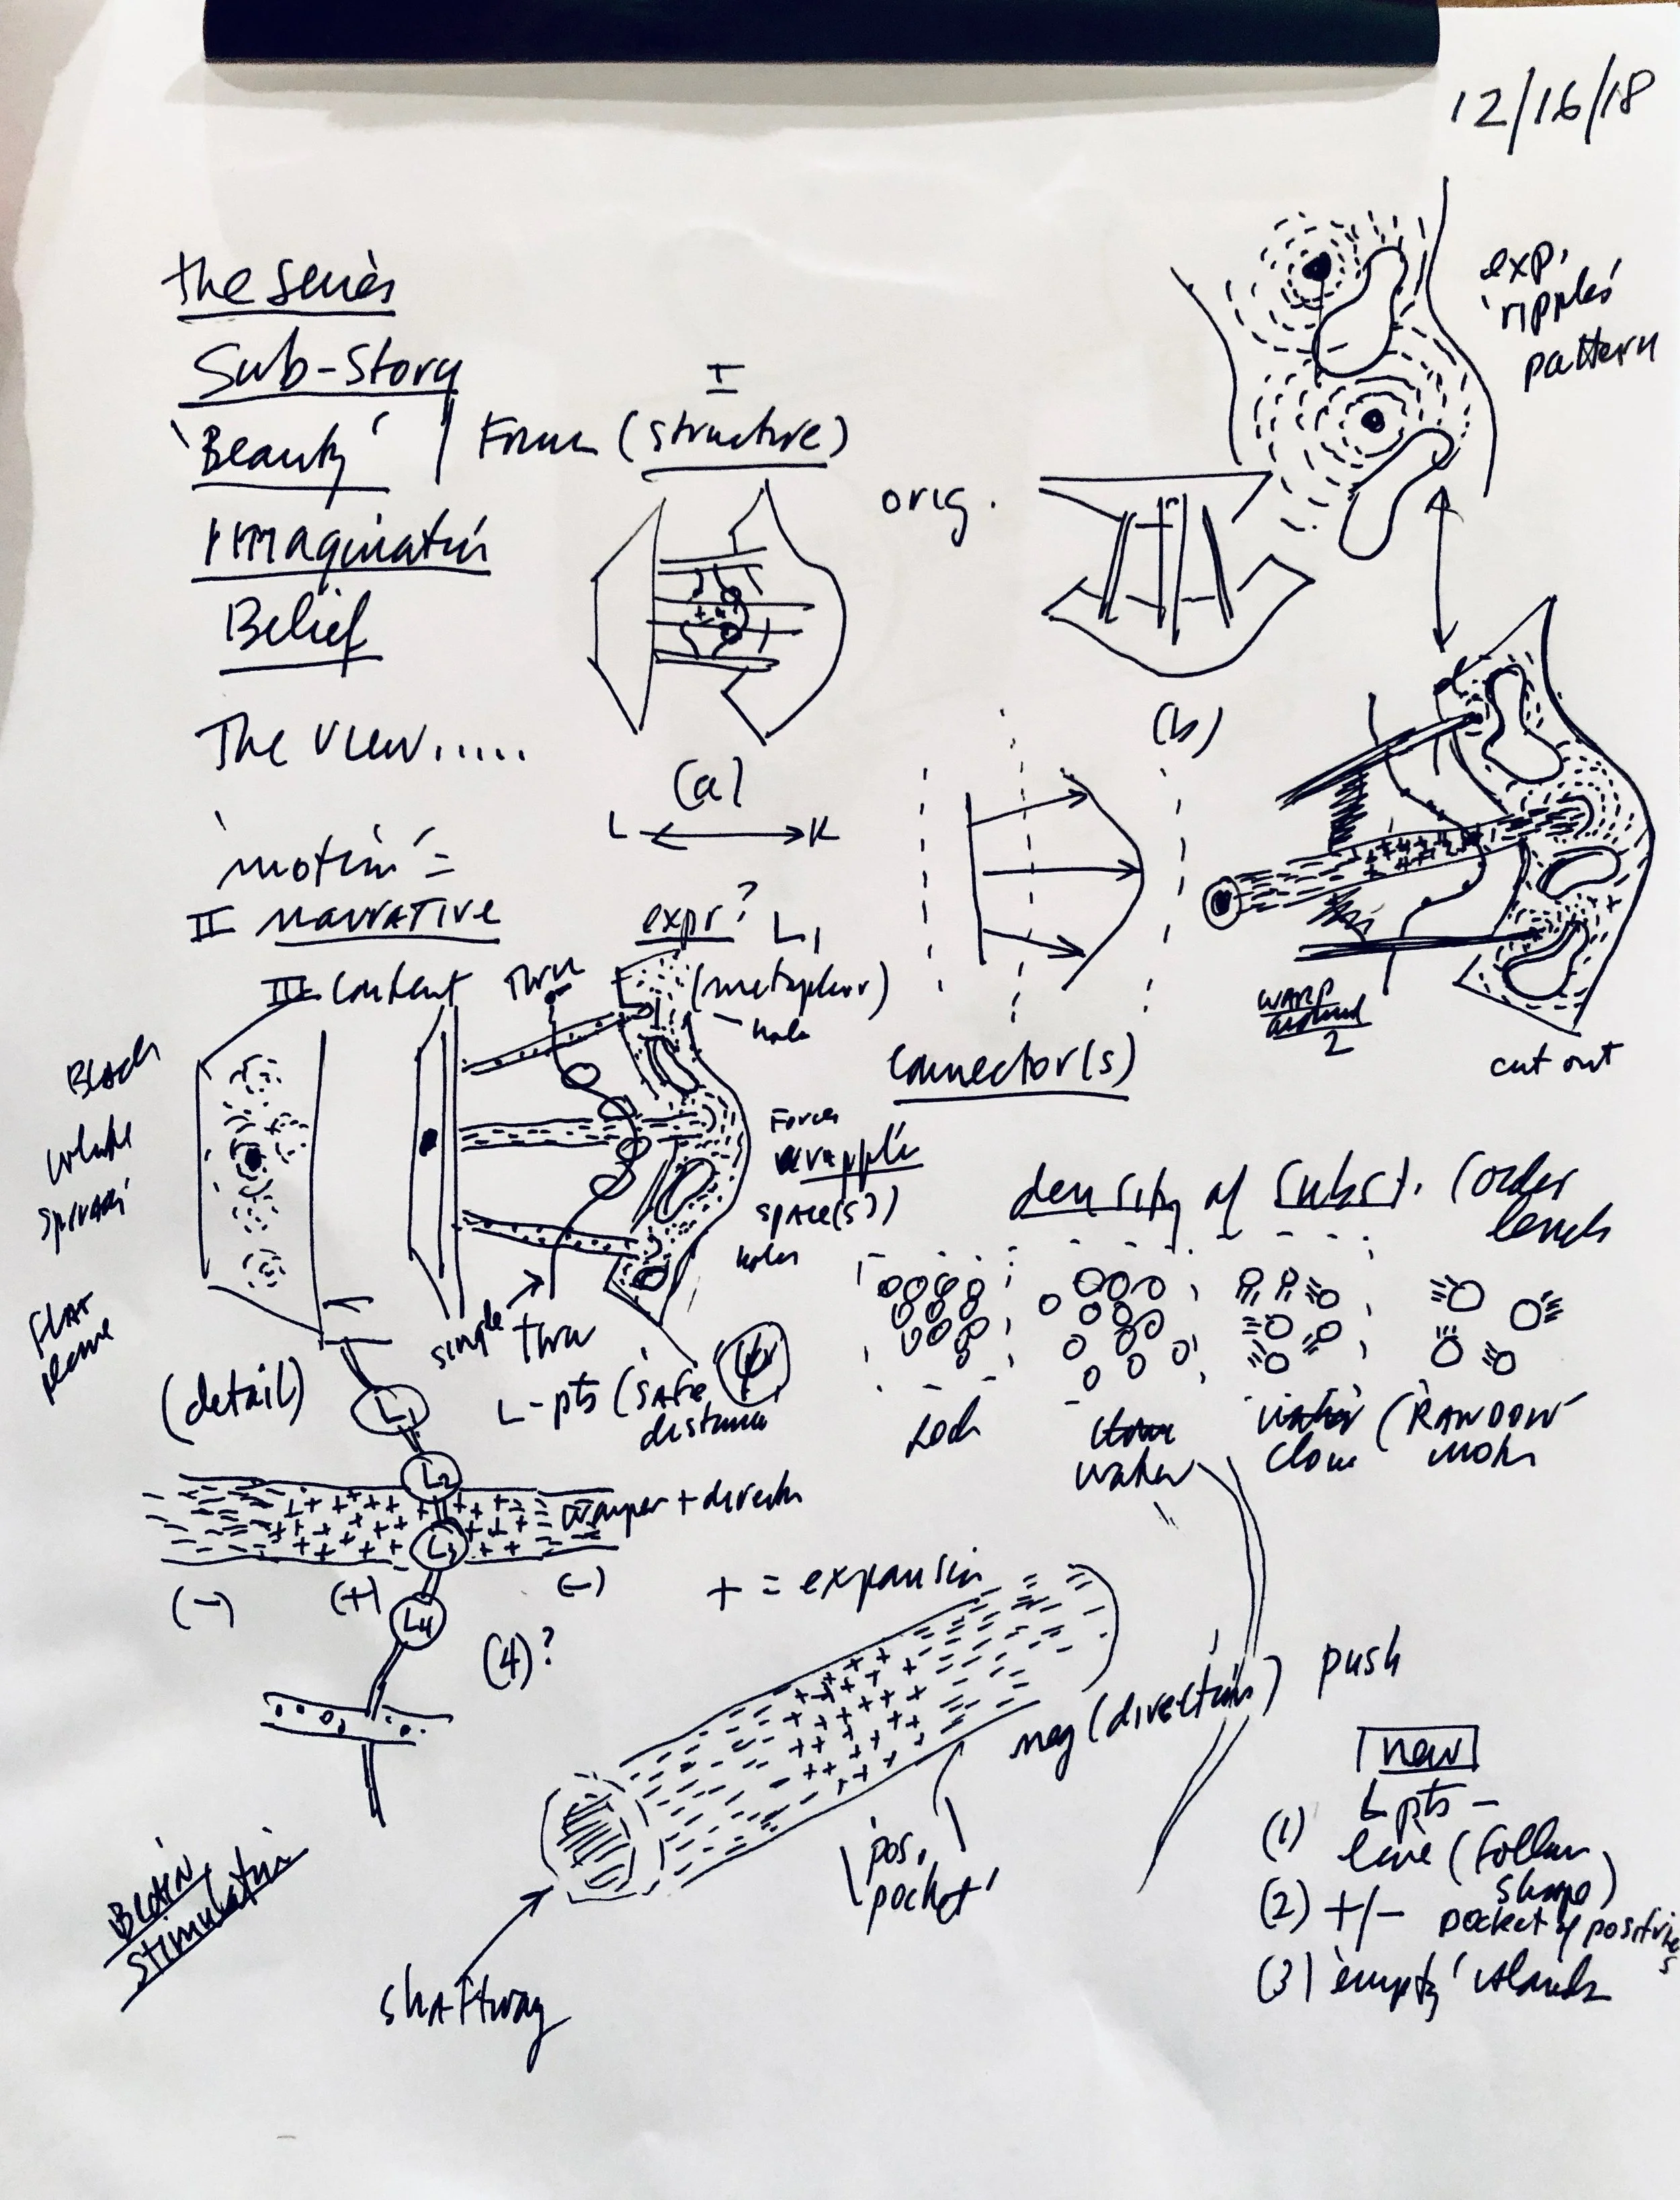 12/16/18
the series
Sub-Story
'Beauty'
Imagination
Belief
I
Form (structure)
orig.
exp.
'ripples'
pattern
The view.....
(a)
(b)
L K
'motion' =
II narrative
III Content
Thru
expr? L1
(metaphor)
- hole
Black
white
FLAT
plane
Forces
space(s))
holes
connector(s)
WARP
around
2
cut out
density of subst. (order
levels
single thru
L-pts (safe
distance
(detail)
L1
L2
L3
L4
water
(RANDOM
+ direction
(-) (+) (-)
(4)?
+ = expansion
neg (direction)
push
'pos.
pocket'
shaftway
Brain
stimulation
new
L pts -
(1) line (follow
shape)
(2) +/- pocket of positives
(3) 'empty' islands